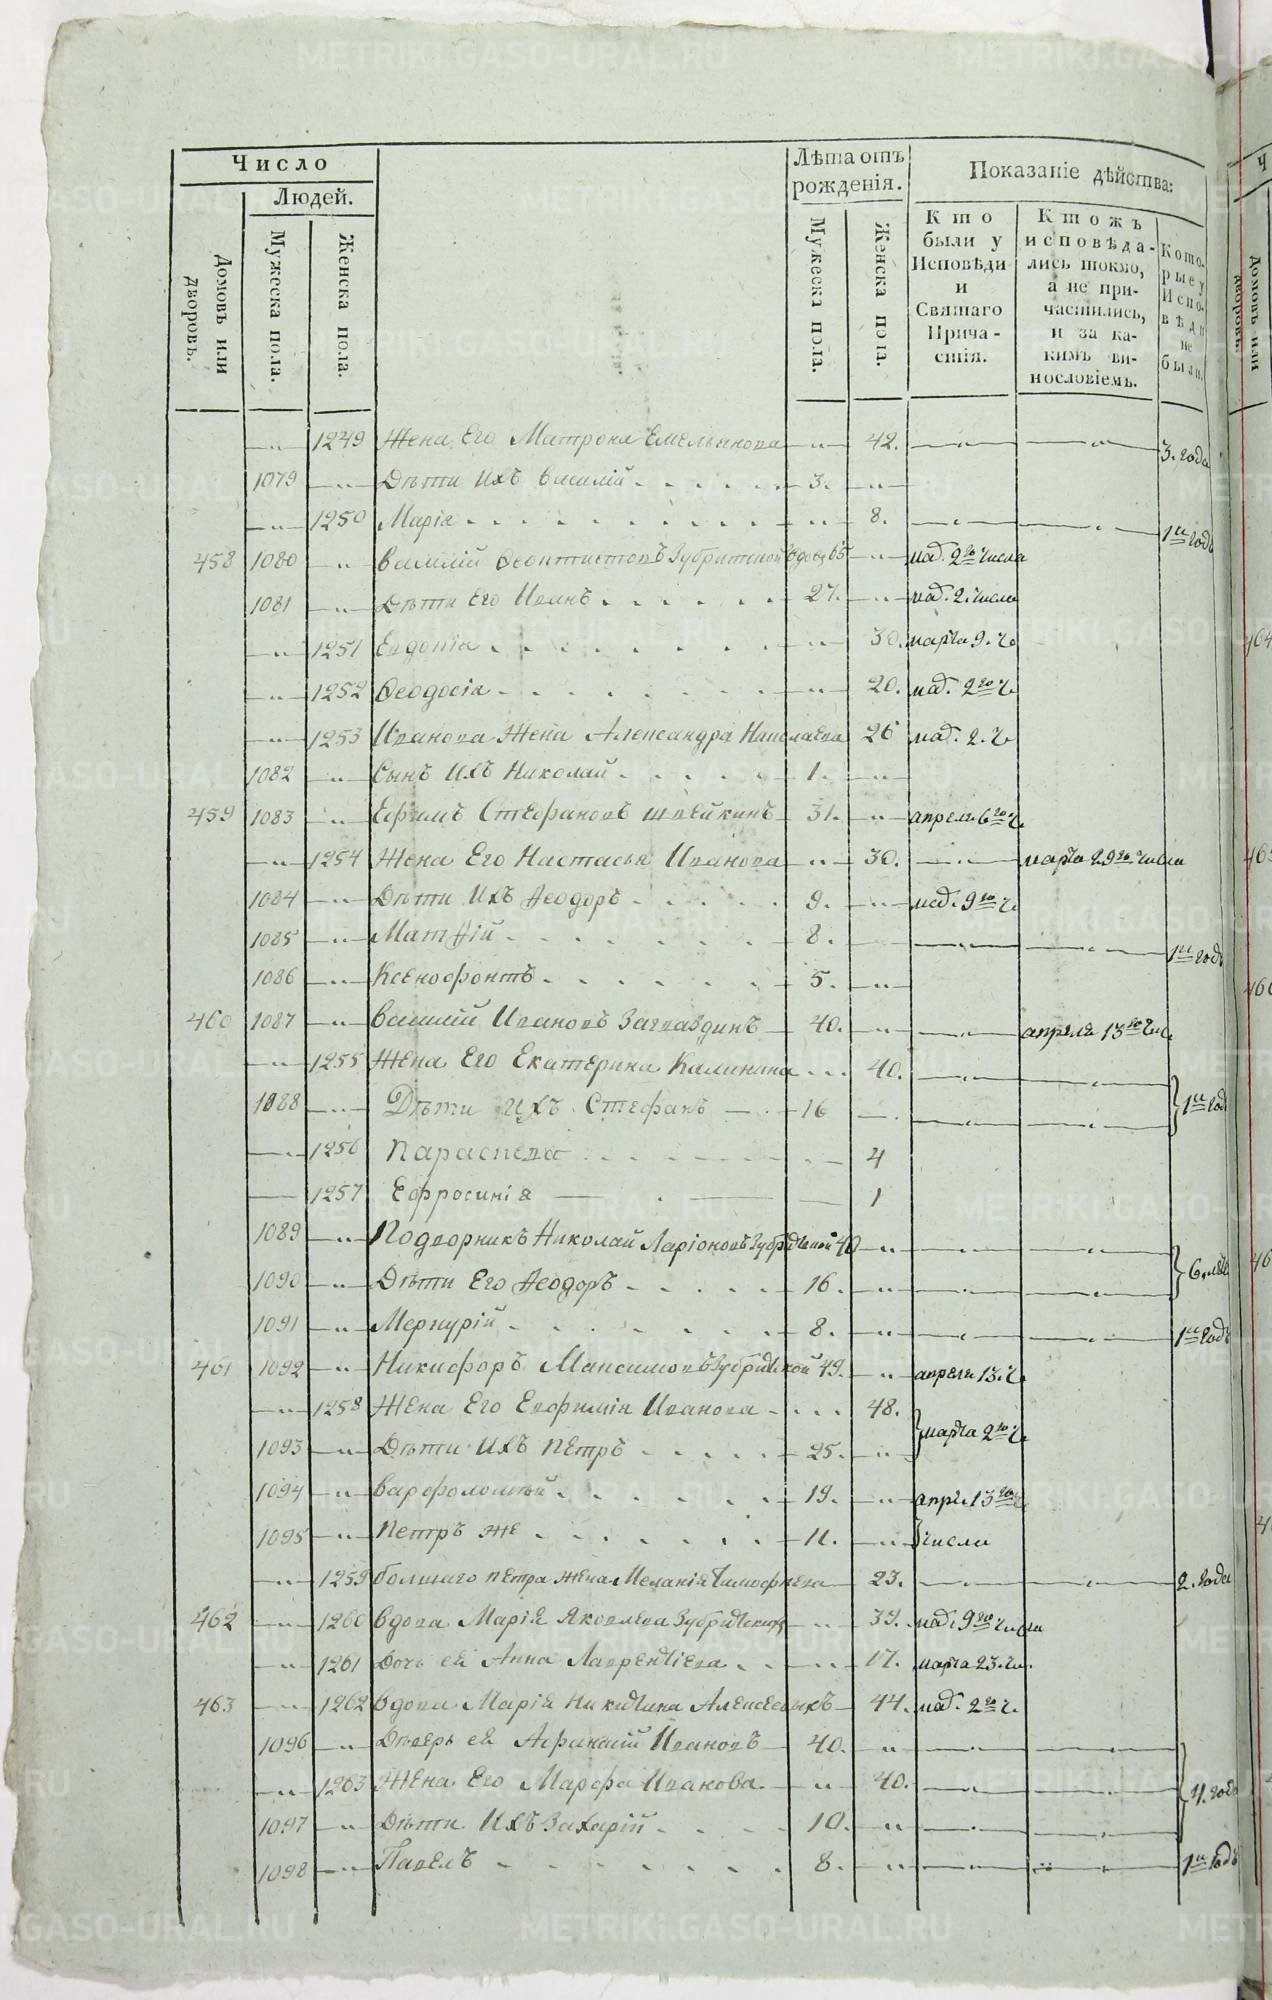 Число
Людей.
Домовъ или дворовъ.
Мужеска пола.
Женска пола.
Лѣта отъ рожденія.
Мужеска пола.
Женска пола.
Показаніе дѣйства:
Кто были у Исповѣди и Святаго Прича-стія.
Ктожъ исповѣда-лись токмо, а не при-частились, и за ка-кимъ ви-нословіемъ.
Кото-рые у Испо-вѣди не были.
1249 Жена Его Матрона Емельянова 42. 3. года
1079 Дѣти ихъ Василій 3.
1250 Марія 8. 1й годъ
458 1080 Василій Феоктистовъ вдовъ 65 мад. 2го числа
1081 Дѣти Его Иванъ 27. мад. 2. числа
1251 Евдокія 30. марта 9. ч.
1252 Феодосія 20. мад. 2го ч.
1253 Иванова Жена Александра Николаева 26 мад. 2. ч.
1082 Сынъ ихъ Николай 1.
459 1083 Ефимъ Стефановъ Швейкинъ 31. апреля 6го ч.
1254 Жена Его Настасья Иванова 30. марта 29го числа
1084 Дѣти ихъ Ѳеодоръ 9. мад. 9го ч.
1085 Матѳій 8. 1й годъ
1086 Ксенофонтъ 5.
460 1087 Василій Ивановъ 40. апреля 13го чис.
1255 Жена Его Екатерина Калинина 40.
1088 Дѣти ихъ Стефанъ 16 1й годъ
1256 Параскева 4
1257 Ефросинія 1
1089 Подворникъ Николай Ларіоновъ Зубрицкой 40
1090 Дѣти Его Ѳеодоръ 16. 6. лѣтъ
1091 Меркурій 8. 1й годъ
461 1092 Никифоръ Максимовъ Зубрицкой 49. апреля 13. ч.
1258 Жена Его Евфимія Иванова 48. марта 2го ч.
1093 Дѣти ихъ Петръ 25.
1094 Варфоломѣй 19. апре. 13го
1095 Петръ же 11. числа
1259 Большаго Петра жена Меланія Тимофѣева 23. 2. года
462 1260 Вдова Марія Яковлева Зубрицкихъ 37. мад. 9го числа
1261 Дочь ея Анна Лаврентіева 17. марта 23. ч.
463 1262 Вдова Марія Никитина Алексеевыхъ 44. мад. 2го ч.
1096 Дѣверь ея Афанасій Ивановъ 40.
1263 Жена Его Марфа Иванова 40. 4. года
1097 Дѣти ихъ Захарій 10.
1098 Павелъ 8. 1й годъ
METRIKI.GASO-URAL.RU